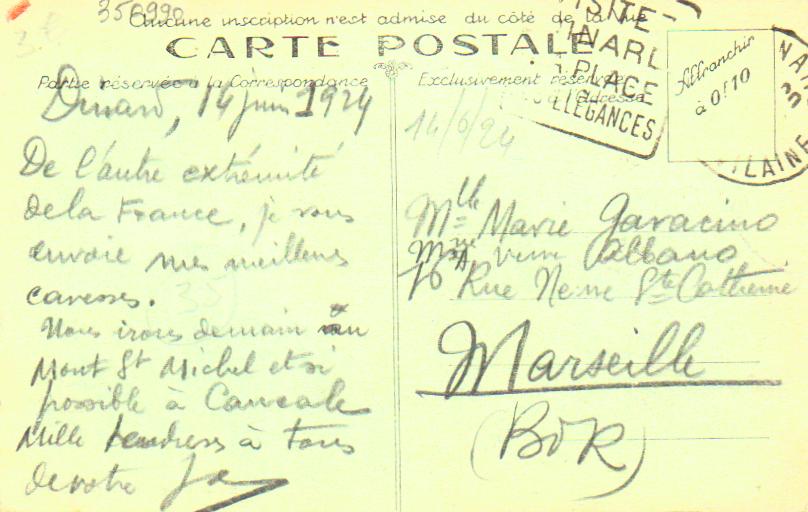 350990
Aucune inscription n'est admise du côté de la Vue
CARTE POSTALE
Partie réservée à la Correspondance
Exclusivement réservée
Adresse
Affranchir
à 0f10
SITE
PLAGE
ÉLÉGANCES
ILAINE
14/6/24
Dinard, 14 juin 1924
De l'autre extrémité
de la France, je vous
envoie mes meilleures
caresses.
Nous irons demain au
Mont St Michel et si
possible à Cancale
Mille tendresses à tous
de votre
Mlle Marie Garacino
Mme Albano
76 Rue Neuve Ste Catherine
Marseille
(BdR)
35